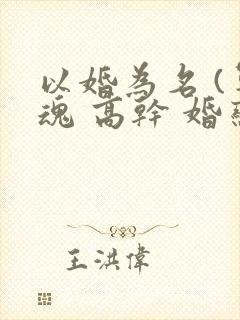 以婚為名(
魂 高幹 婚
王洪偉